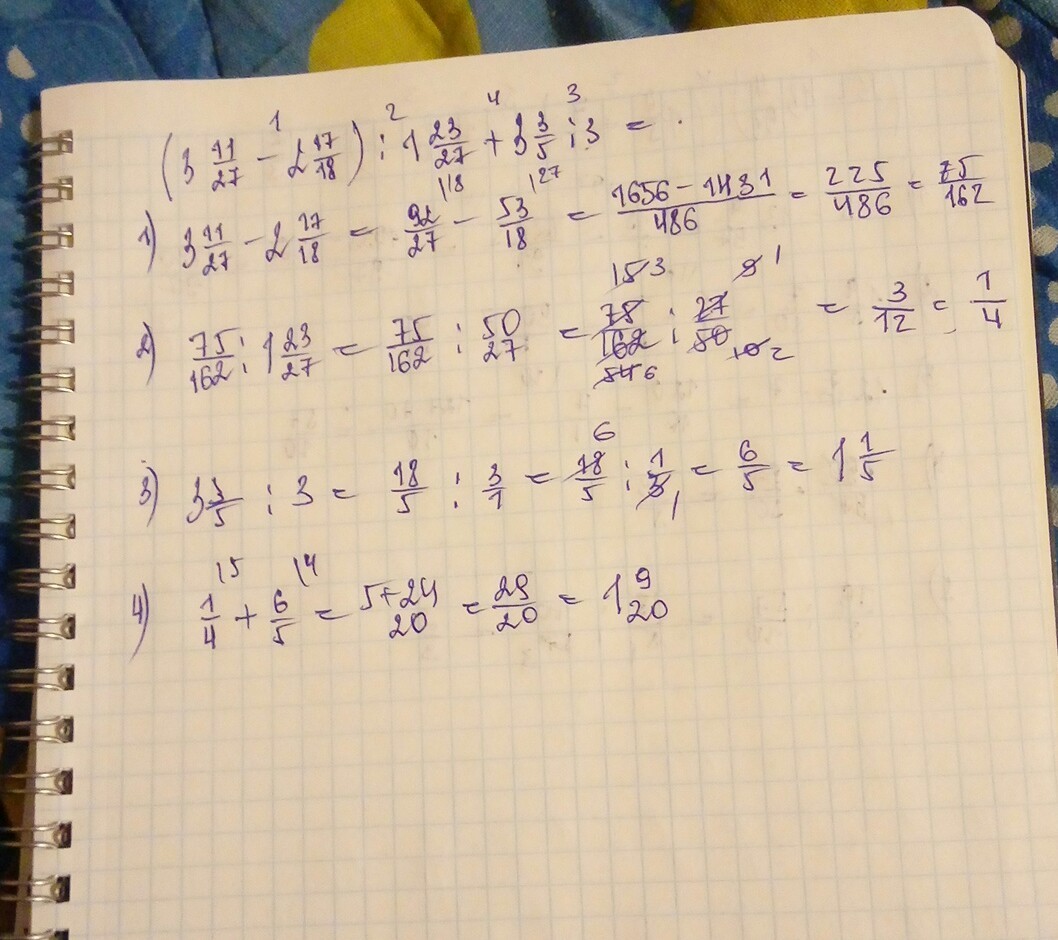 1 2 4 3
(3 11/27 - 2 17/18) : 1 23/27 + 3 3/5 : 3 = .
1) 3 11/27 - 2 17/18 = 92/27 \18 - 53/18 \27 = 1656-1431/486 = 225/486 = 75/162
2) 75/162 : 1 23/27 = 75/162 : 50/27 = 75/162 : 27/50 = 3/12 = 1/4
15 3 9 1
54 6 10 2
3) 3 3/5 : 3 = 18/5 : 3/1 = 18/5 : 1/3 = 6/5 = 1 1/5
6 1
4) 1/4 \5 + 6/5 \4 = 5+24/20 = 29/20 = 1 9/20